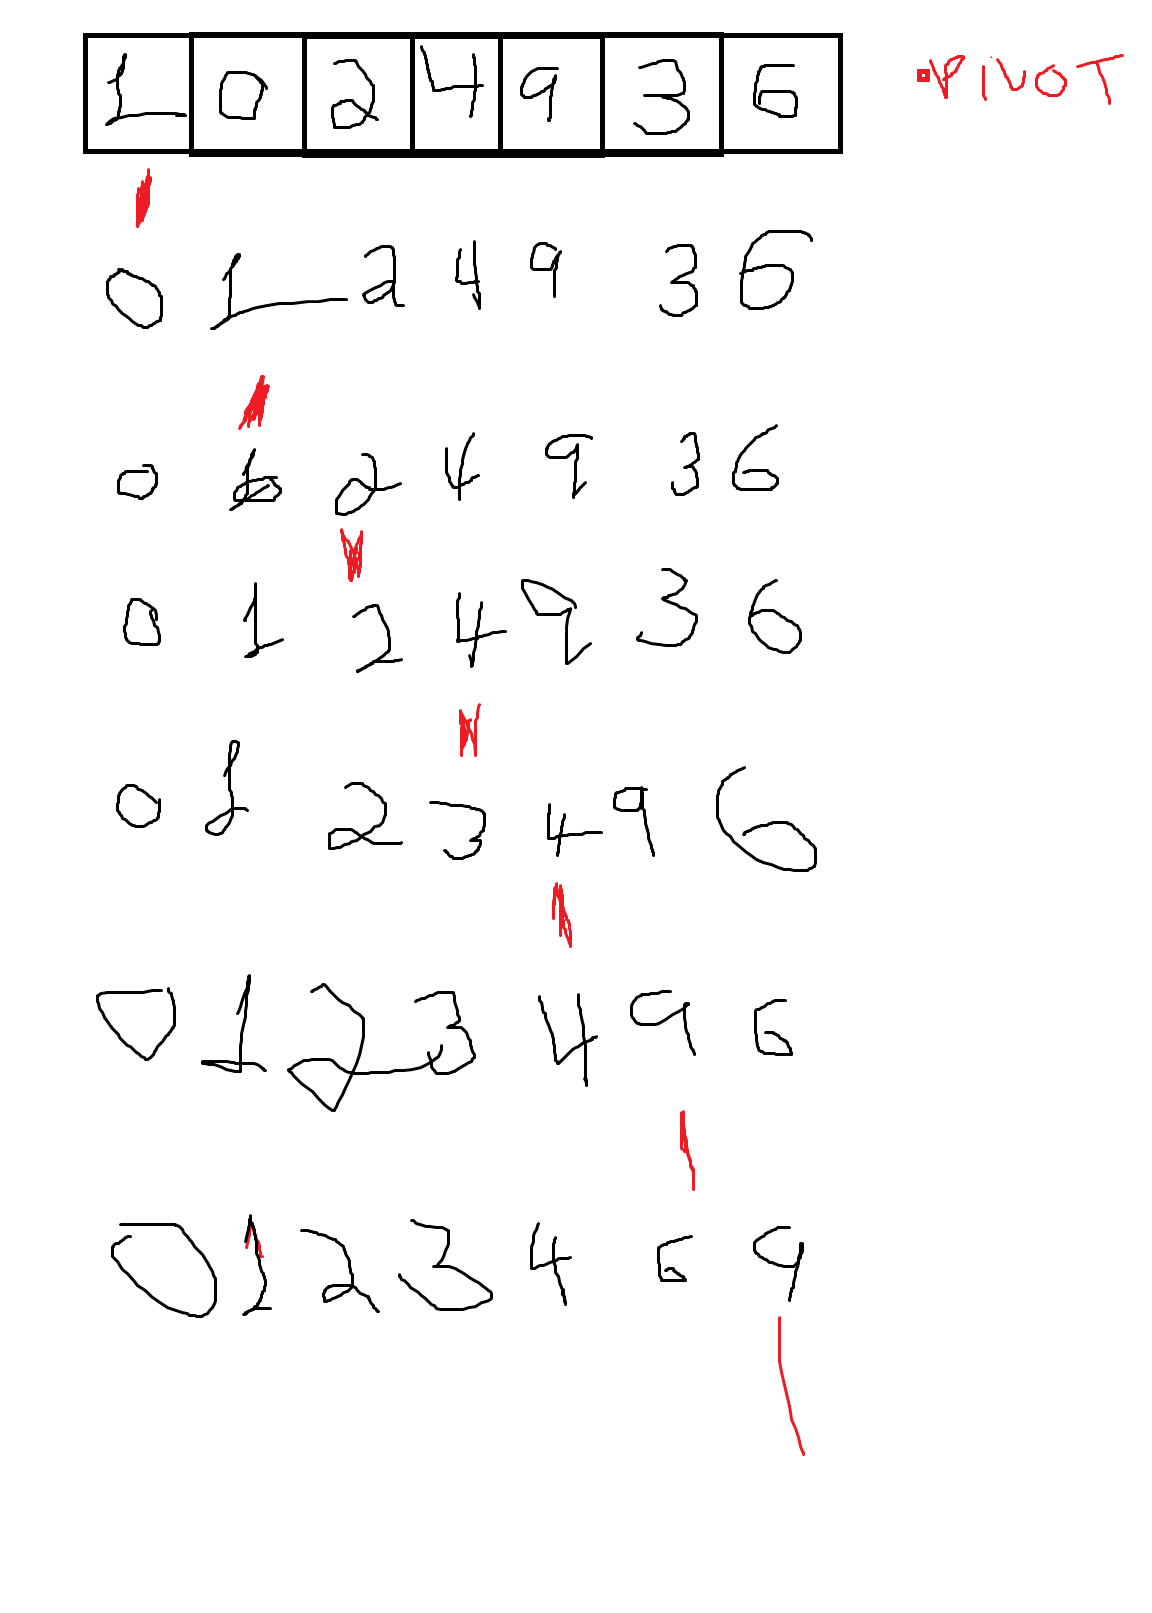 1 0 2 4 9 3 6 PIVOT
0 1 2 4 9 3 6
0 1 2 4 9 3 6
0 1 2 4 9 3 6
0 1 2 3 4 9 6
0 1 2 3 4 9 6
0 1 2 3 4 6 9